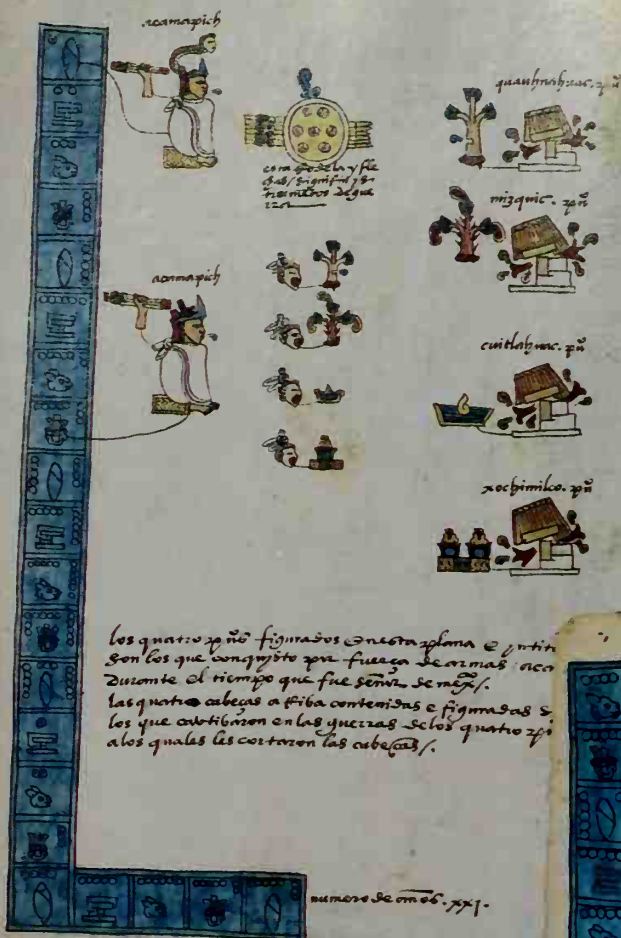 acamapich
quauhnahuac. pũ
esta rrodela y fle
chas / significā yns
trumētos de gue
rra
mizquic. pũ
acamapich
cuitlahuac. pũ
xochimilco. pũ
los quatro pũos figurados en esta plana e yntit
son los que conquisto por fuerça de armas aca
durante el tiempo que fue señor de mexco /.
las quatro cabeças arriba contenidas e figuradas s
los que cavtibaron en las guerras de los quatro
a los quales les cortaron las cabeças /.
numero de años. xxi.